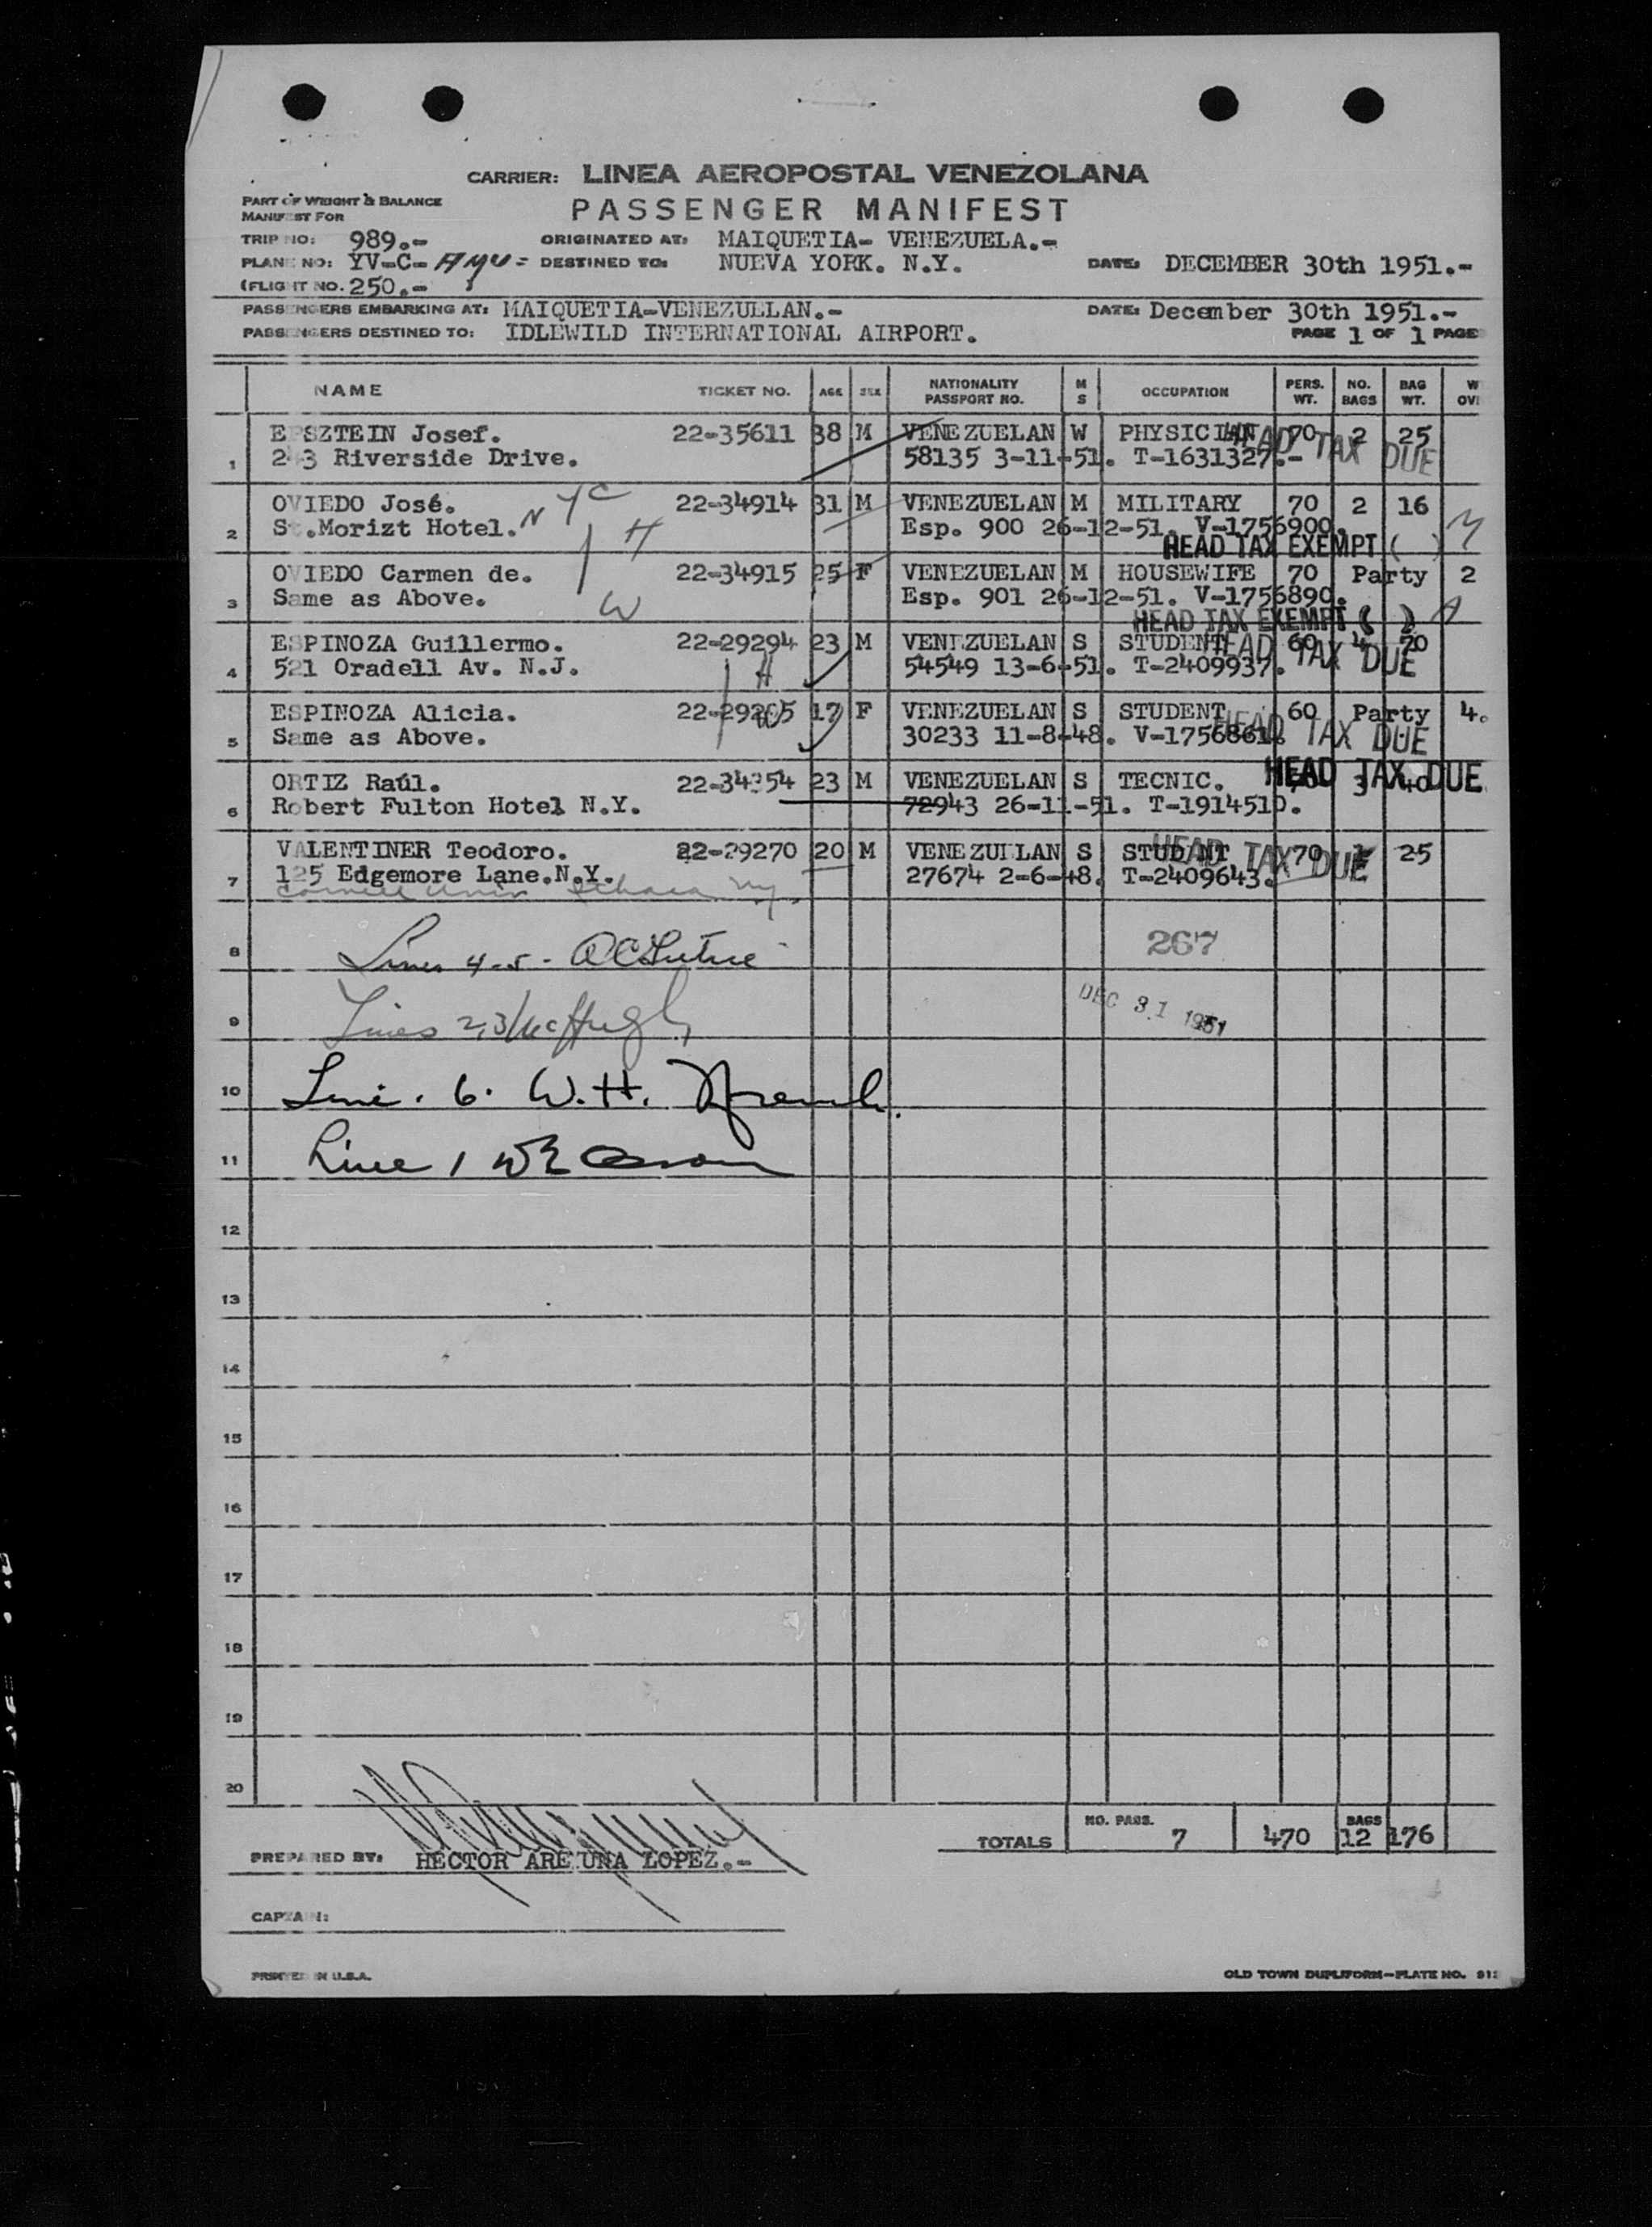 CARRIER: LINEA AEROPOSTAL VENEZOLANA
PART OF WEIGHT & BALANCE
MANIFEST FOR
PASSENGER MANIFEST
TRIP NO: 989.- ORIGINATED AT: MAIQUETIA- VENEZUELA.-
PLANE NO: YV-C-AMU= DESTINED TO: NUEVA YORK. N.Y. DATE: DECEMBER 30th 1951.-
(FLIGHT NO. 250.-
PASSENGERS EMBARKING AT: MAIQUETIA-VENEZUELAN.- DATE: December 30th 1951.-
PASSENGERS DESTINED TO: IDLEWILD INTERNATIONAL AIRPORT. PAGE 1 OF 1 PAGE
NAME TICKET NO. AGE SEX NATIONALITY PASSPORT NO. M S OCCUPATION PERS. WT. NO. BAGS BAG WT. W OV
EPSZTEIN Josef. 22-35611 38 M VENEZUELAN W PHYSICIAN 70 2 25
HEAD TAX DUE
1 243 Riverside Drive. 58135 3-11-51. T-1631327.-
OVIEDO José. NYC 22-34914 31 M VENEZUELAN M MILITARY 70 2 16
2 St.Morizt Hotel. H Esp. 900 26-12-51. V-1756900.
HEAD TAX EXEMPT ( )
OVIEDO Carmen de. 22-34915 25 F VENEZUELAN M HOUSEWIFE 70 Party 2
3 Same as Above. W Esp. 901 26-12-51. V-1756890.
HEAD TAX EXEMPT ( )
ESPINOZA Guillermo. 22-29294 23 M VENEZUELAN S STUDENT 60 4 70
HEAD TAX DUE
4 521 Oradell Av. N.J. H 54549 13-6-51. T-2409937.
ESPINOZA Alicia. 22-29295 17 F VENEZUELAN S STUDENT 60 Party 4.
HEAD TAX DUE
5 Same as Above. W 30233 11-8-48. V-1756861.
ORTIZ Raúl. 22-34354 23 M VENEZUELAN S TECNIC. 70 3 40
HEAD TAX DUE
6 Robert Fulton Hotel N.Y. 72943 26-11-51. T-1914510.
VALENTINER Teodoro. 22-29270 20 M VENEZUELAN S STUDENT 70 1 25
HEAD TAX DUE
7 125 Edgemore Lane.N.Y. 27674 2-6-48. T-2409643.
Cornell Univ Ithaca NY.
8 Lines 4-5 - 267
9 Lines 2,3 DEC 31 1951
10 Line. 6. W.H. French.
11 Line 1
12
13
14
15
16
17
18
19
20
TOTALS NO. PASS. 7 470 BAGS 12 176
PREPARED BY: HECTOR ARETUNA LOPEZ.-
CAPTAIN:
PRINTED IN U.S.A. OLD TOWN DUPLIFORM-PLATE NO.